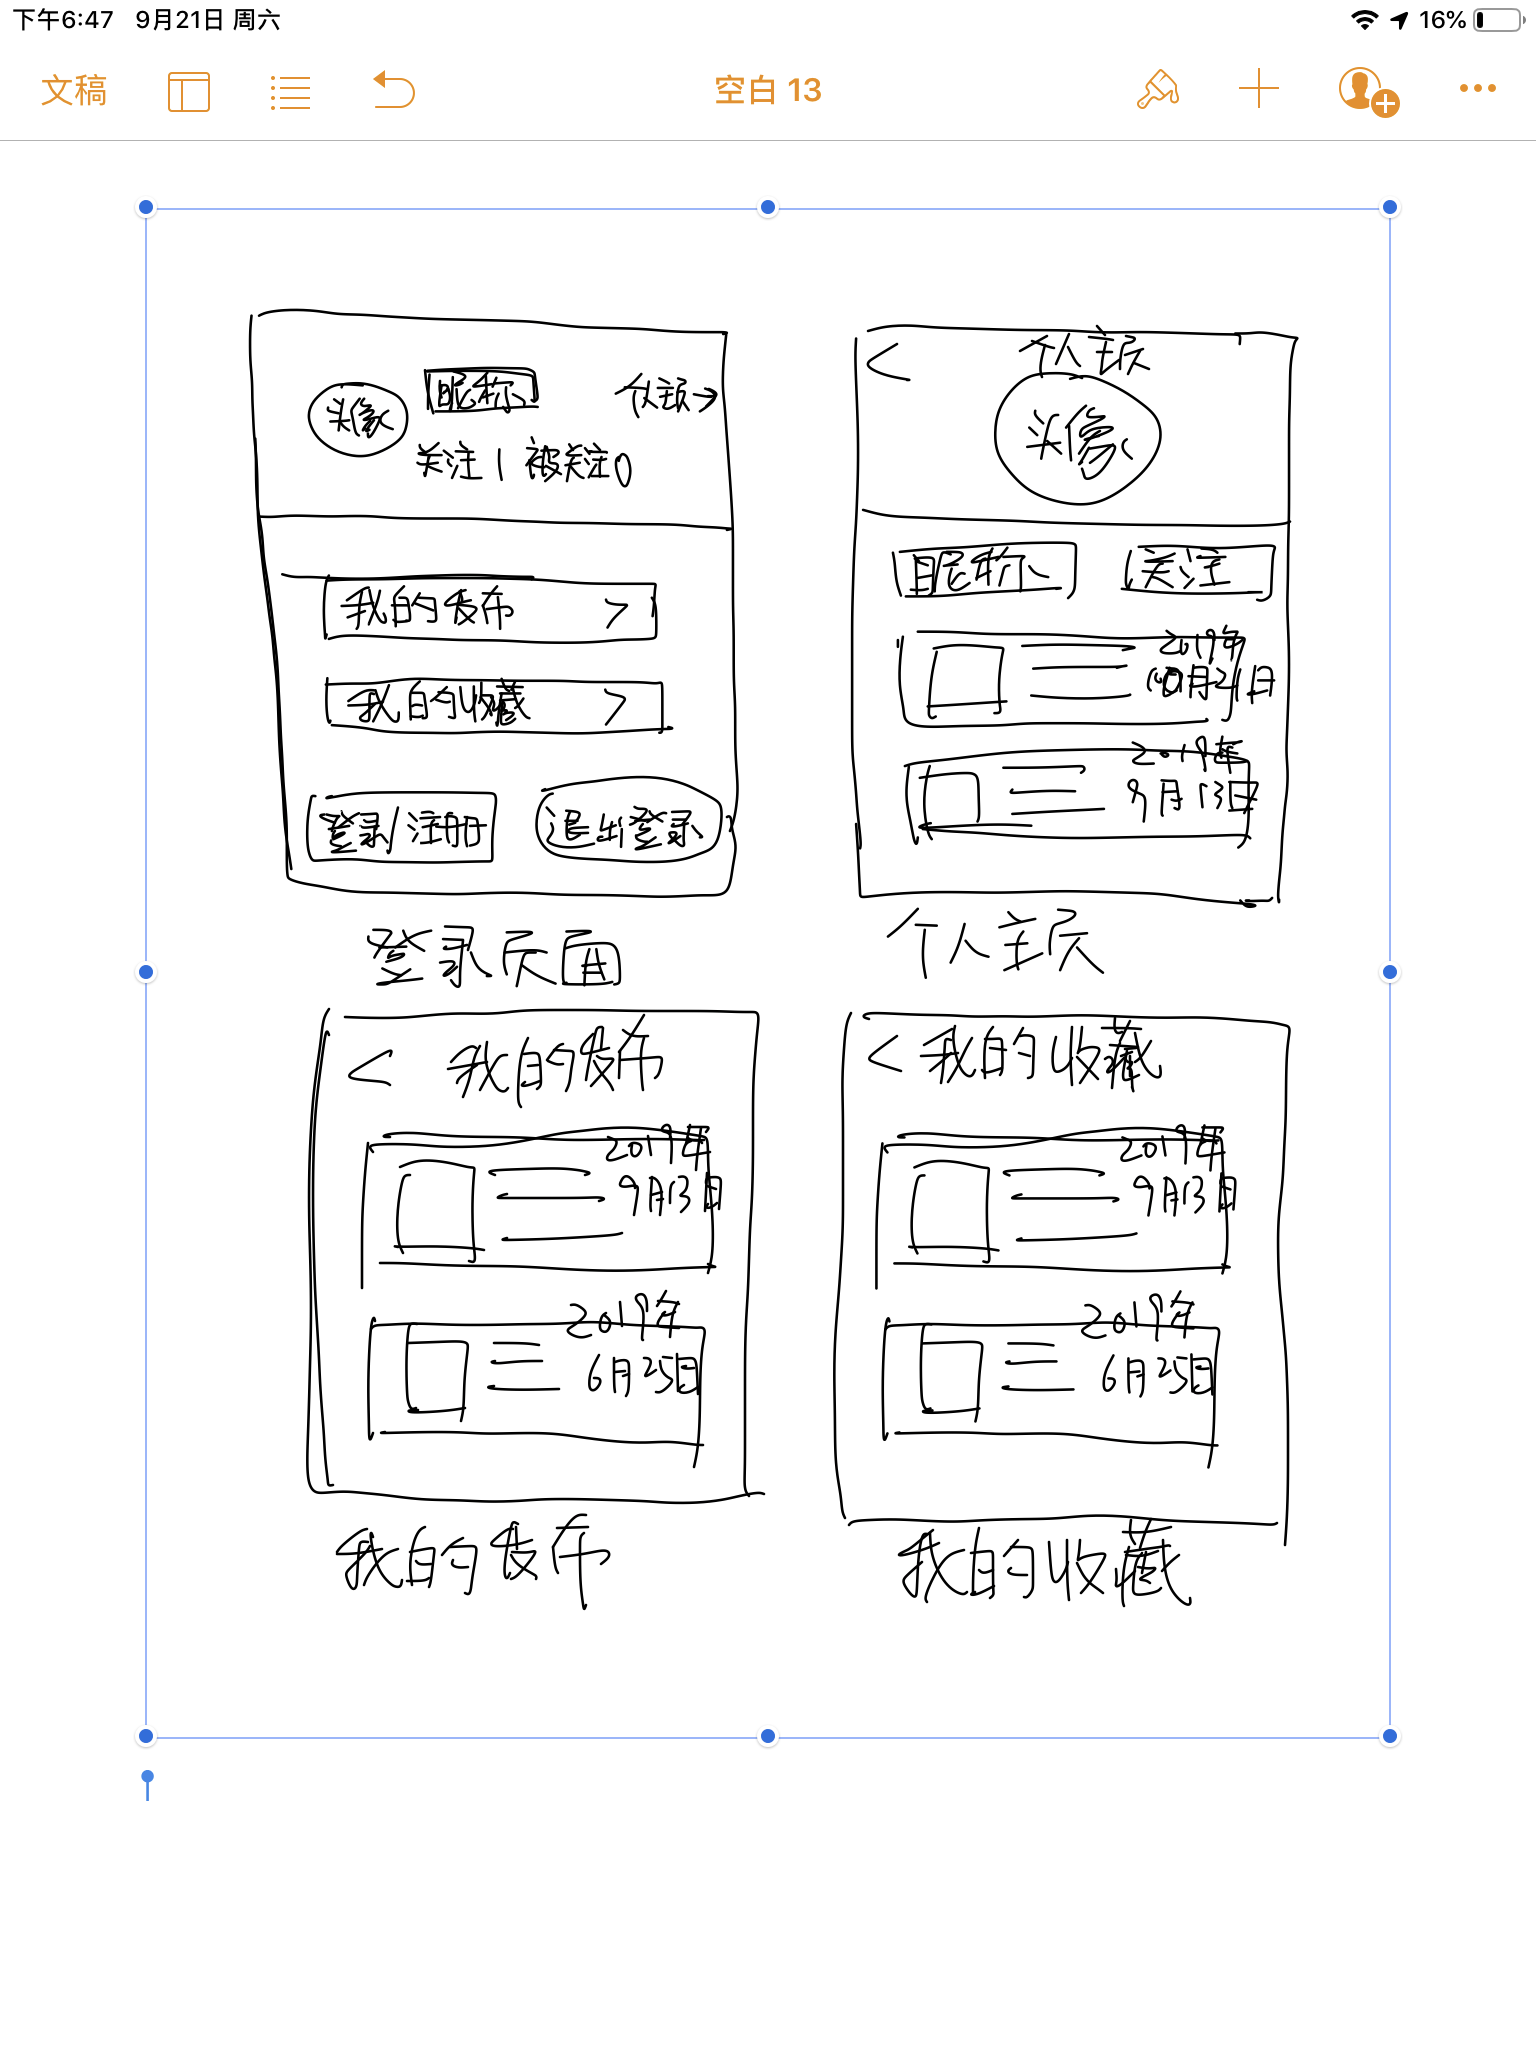 下午6:47 9月21日 周六
16%
文稿
空白 13
头像
昵称
个人主页→
关注 | 被关注0
我的发布 >
我的收藏 >
登录/注册
退出登录
登录页面
< 个人主页
头像
昵称
关注
2019年
10月21日
2019年
9月13日
个人主页
< 我的发布
2019年
9月13日
2019年
6月25日
我的发布
< 我的收藏
2019年
9月13日
2019年
6月25日
我的收藏